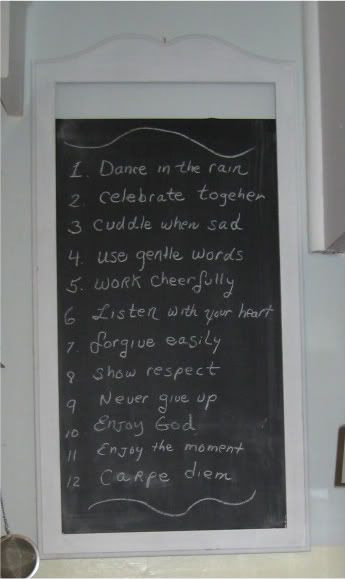 1. Dance in the rain
2. celebrate togeher
3 cuddle when sad
4. use gentle words
5. work cheerfully
6 Listen with your heart
7. forgive easily
8 show respect
9 Never give up
10 Enjoy God
11 Enjoy the moment
12 Carpe diem